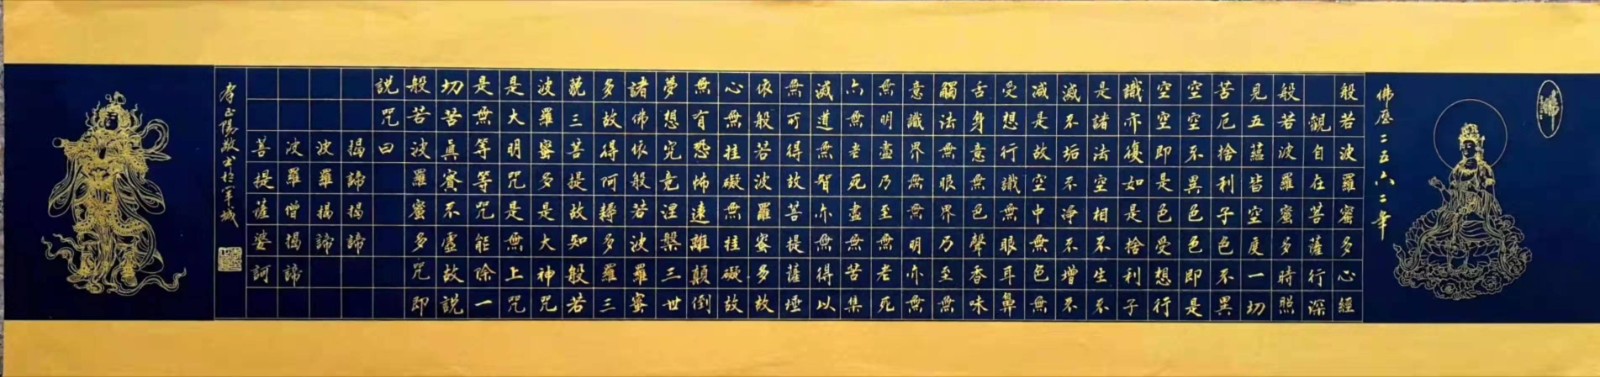 佛
佛歷二五六二年
般若波羅蜜多心經
觀自在菩薩行深
般若波羅蜜多時照
見五蘊皆空度一切
苦厄捨利子色不異
空空不異色色即是
空空即是色受想行
識亦復如是捨利子
是諸法空相不生不
滅不垢不淨不增不
減是故空中無色無
受想行識無眼耳鼻
舌身意無色聲香味
觸法無眼界乃至無
意識界無無明亦無
無明盡乃至無老死
亦無老死盡無苦集
滅道無智亦無得以
無可得故菩提薩埵
依般若波羅蜜多故
心無挂礙無挂礙故
無有恐怖遠離顛倒
夢想究竟涅槃三世
諸佛依般若波羅蜜
多故得阿耨多羅三
藐三菩提故知般若
波羅蜜多是大神咒
是大明咒是無上咒
是無等等咒能除一
切苦真實不虛故說
般若波羅蜜多咒即
說咒曰
揭諦揭諦
波羅揭諦
波羅僧揭諦
菩提薩婆訶
李正陽敬书於城